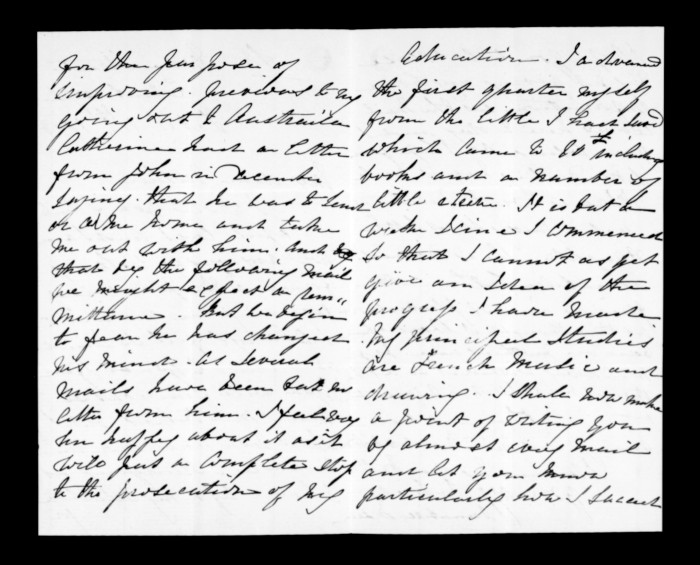 for the purpose of
improving. previous to my
going out to Australia
Catherine had a letter
from John in December
saying that he was to send
or come home and take
me out with him. and
that by the following mail
we might expect a rem"
mittance. But we begin
to fear he has changed
his mind. as several
mails have been but no
letter from him. I feel very
un happy about it as it
will put a complete stop
to the prosecution of my
education. I advanced
the first quarter myself
from the little I had saved
which came to including
books and a number of
little etcetra. It is but a
week since I commenced
so that I cannot as yet
give an Idea of the
progress I have made
My principal Studies
are French Music and
drawing. I shall now make
a point of writing you
by almost every Mail
and let you know
particularly how I succeed